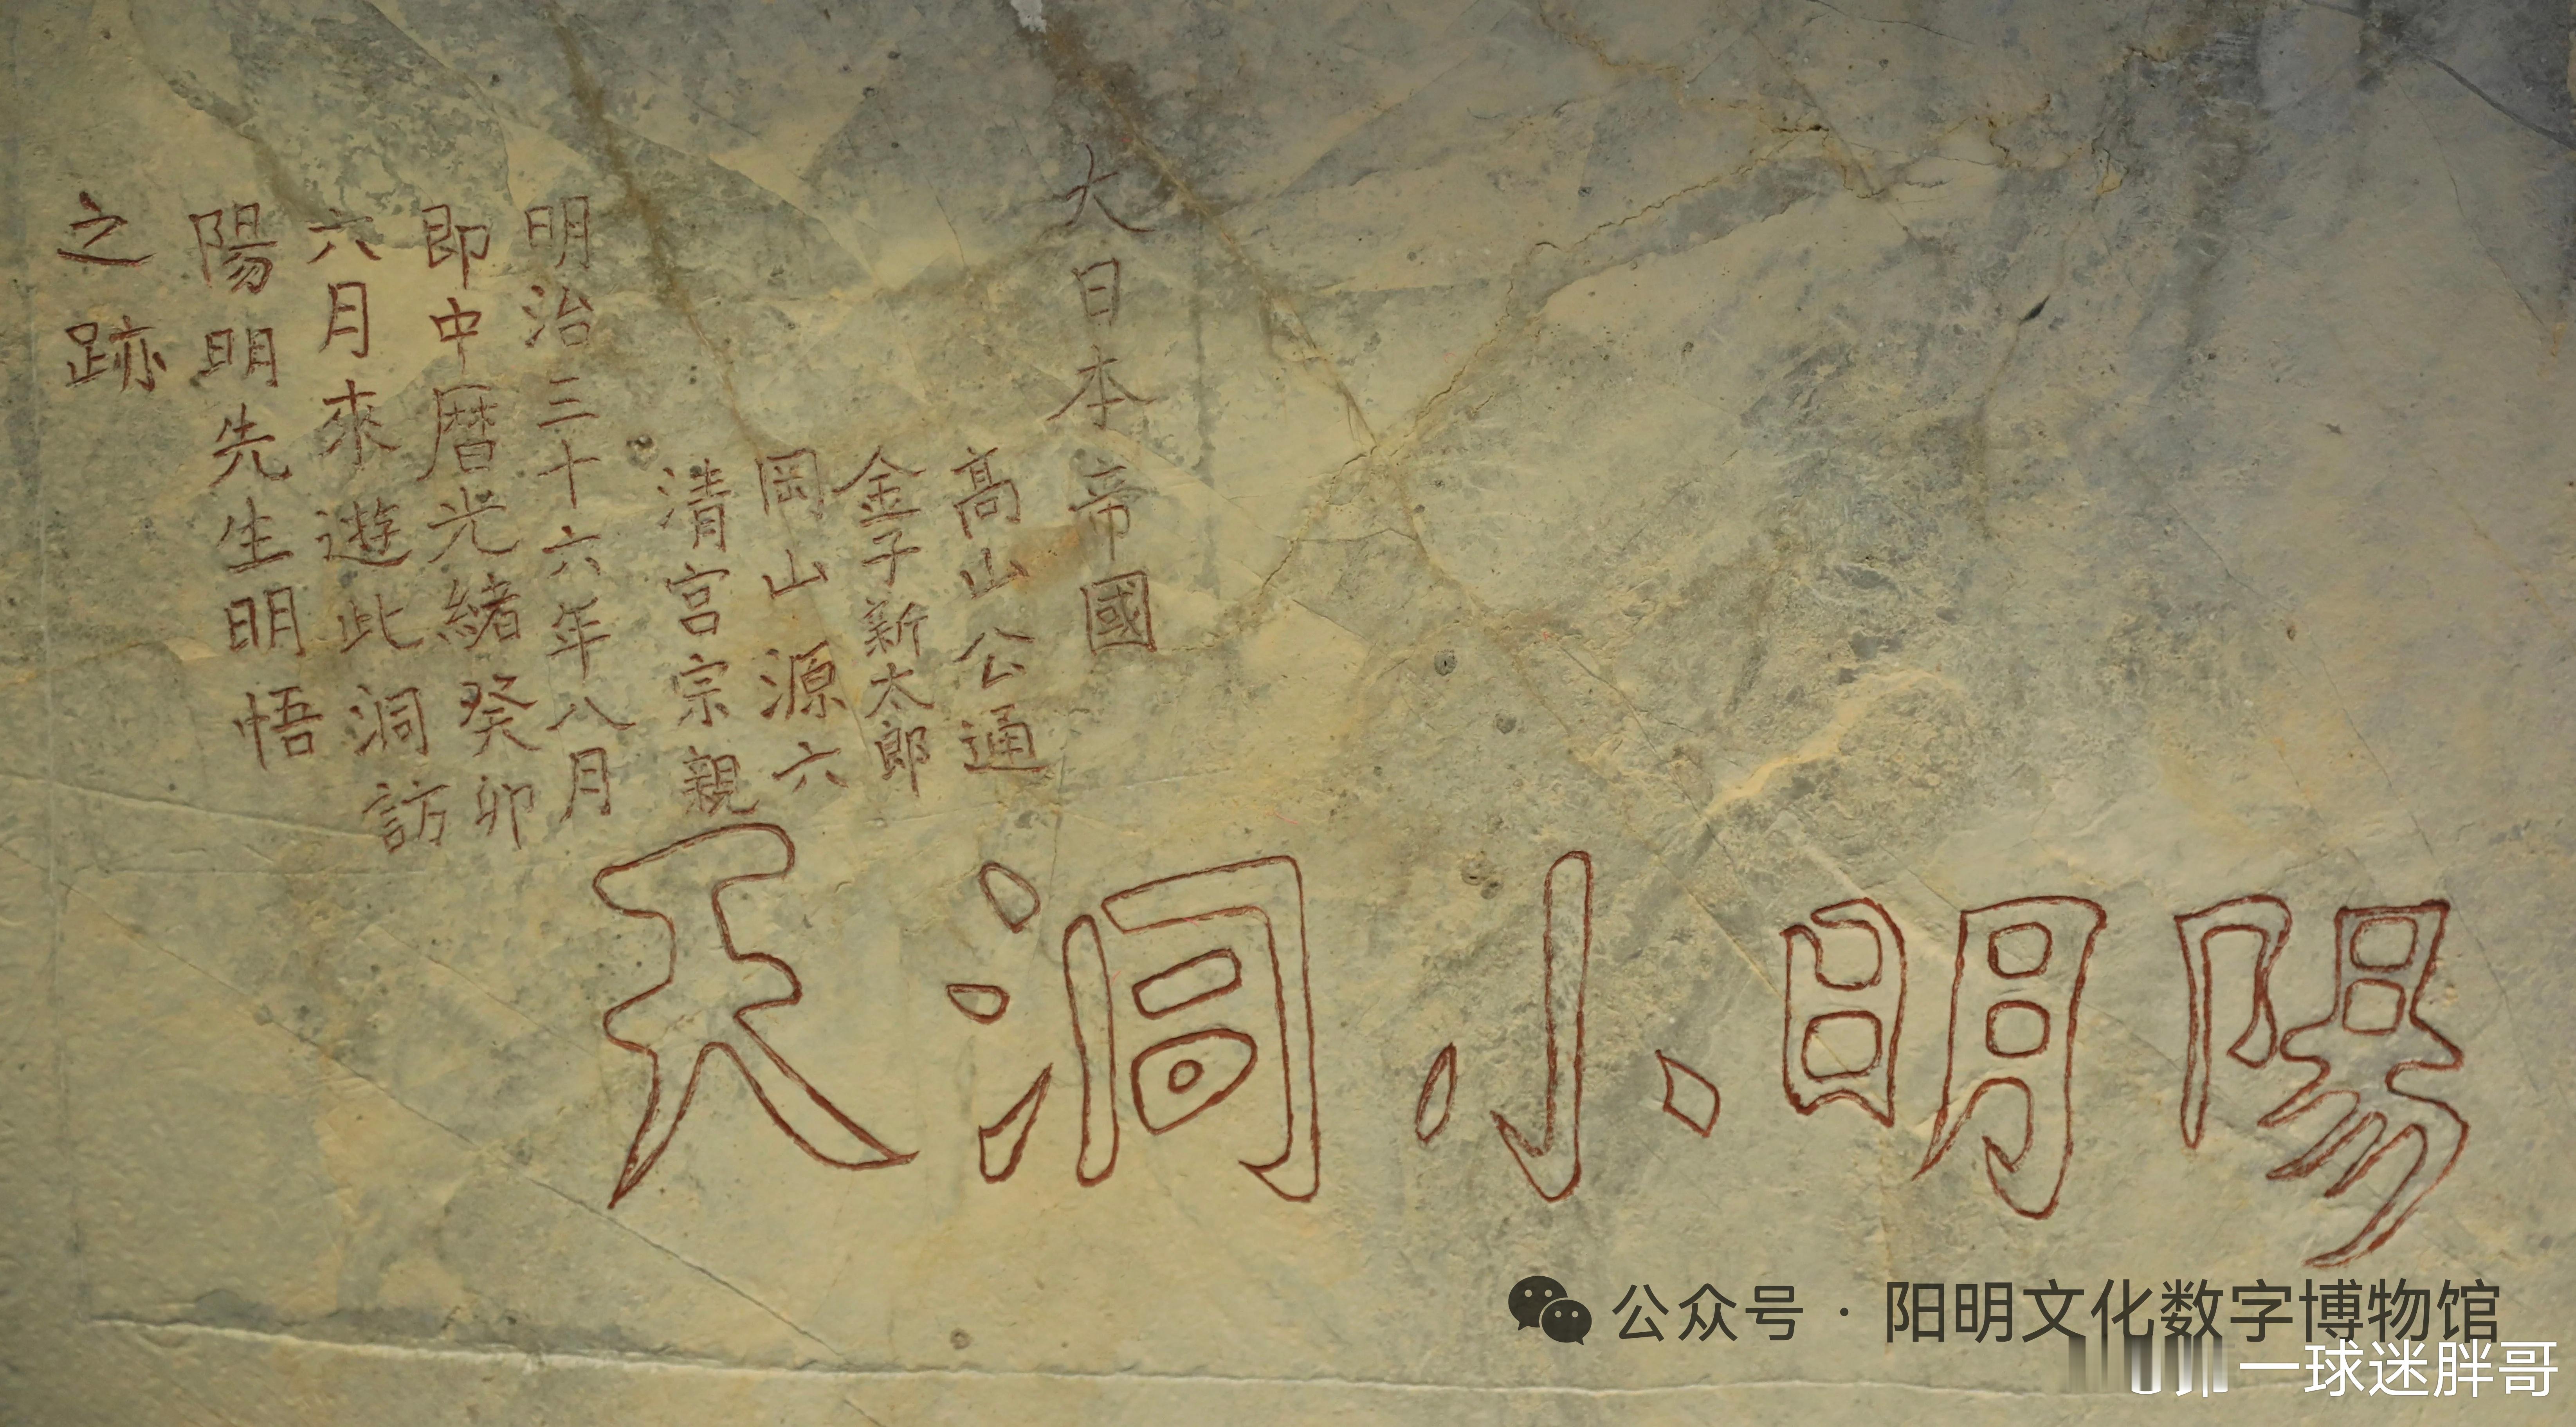 大日本帝國
高山公通
金子新太郎
岡山源六
清宮宗親
明治三十六年八月
即中暦光緒癸卯
六月來遊此洞訪
陽明先生明悟
之跡
陽明小洞天
公众号·阳明文化数字博物馆
一球迷胖哥